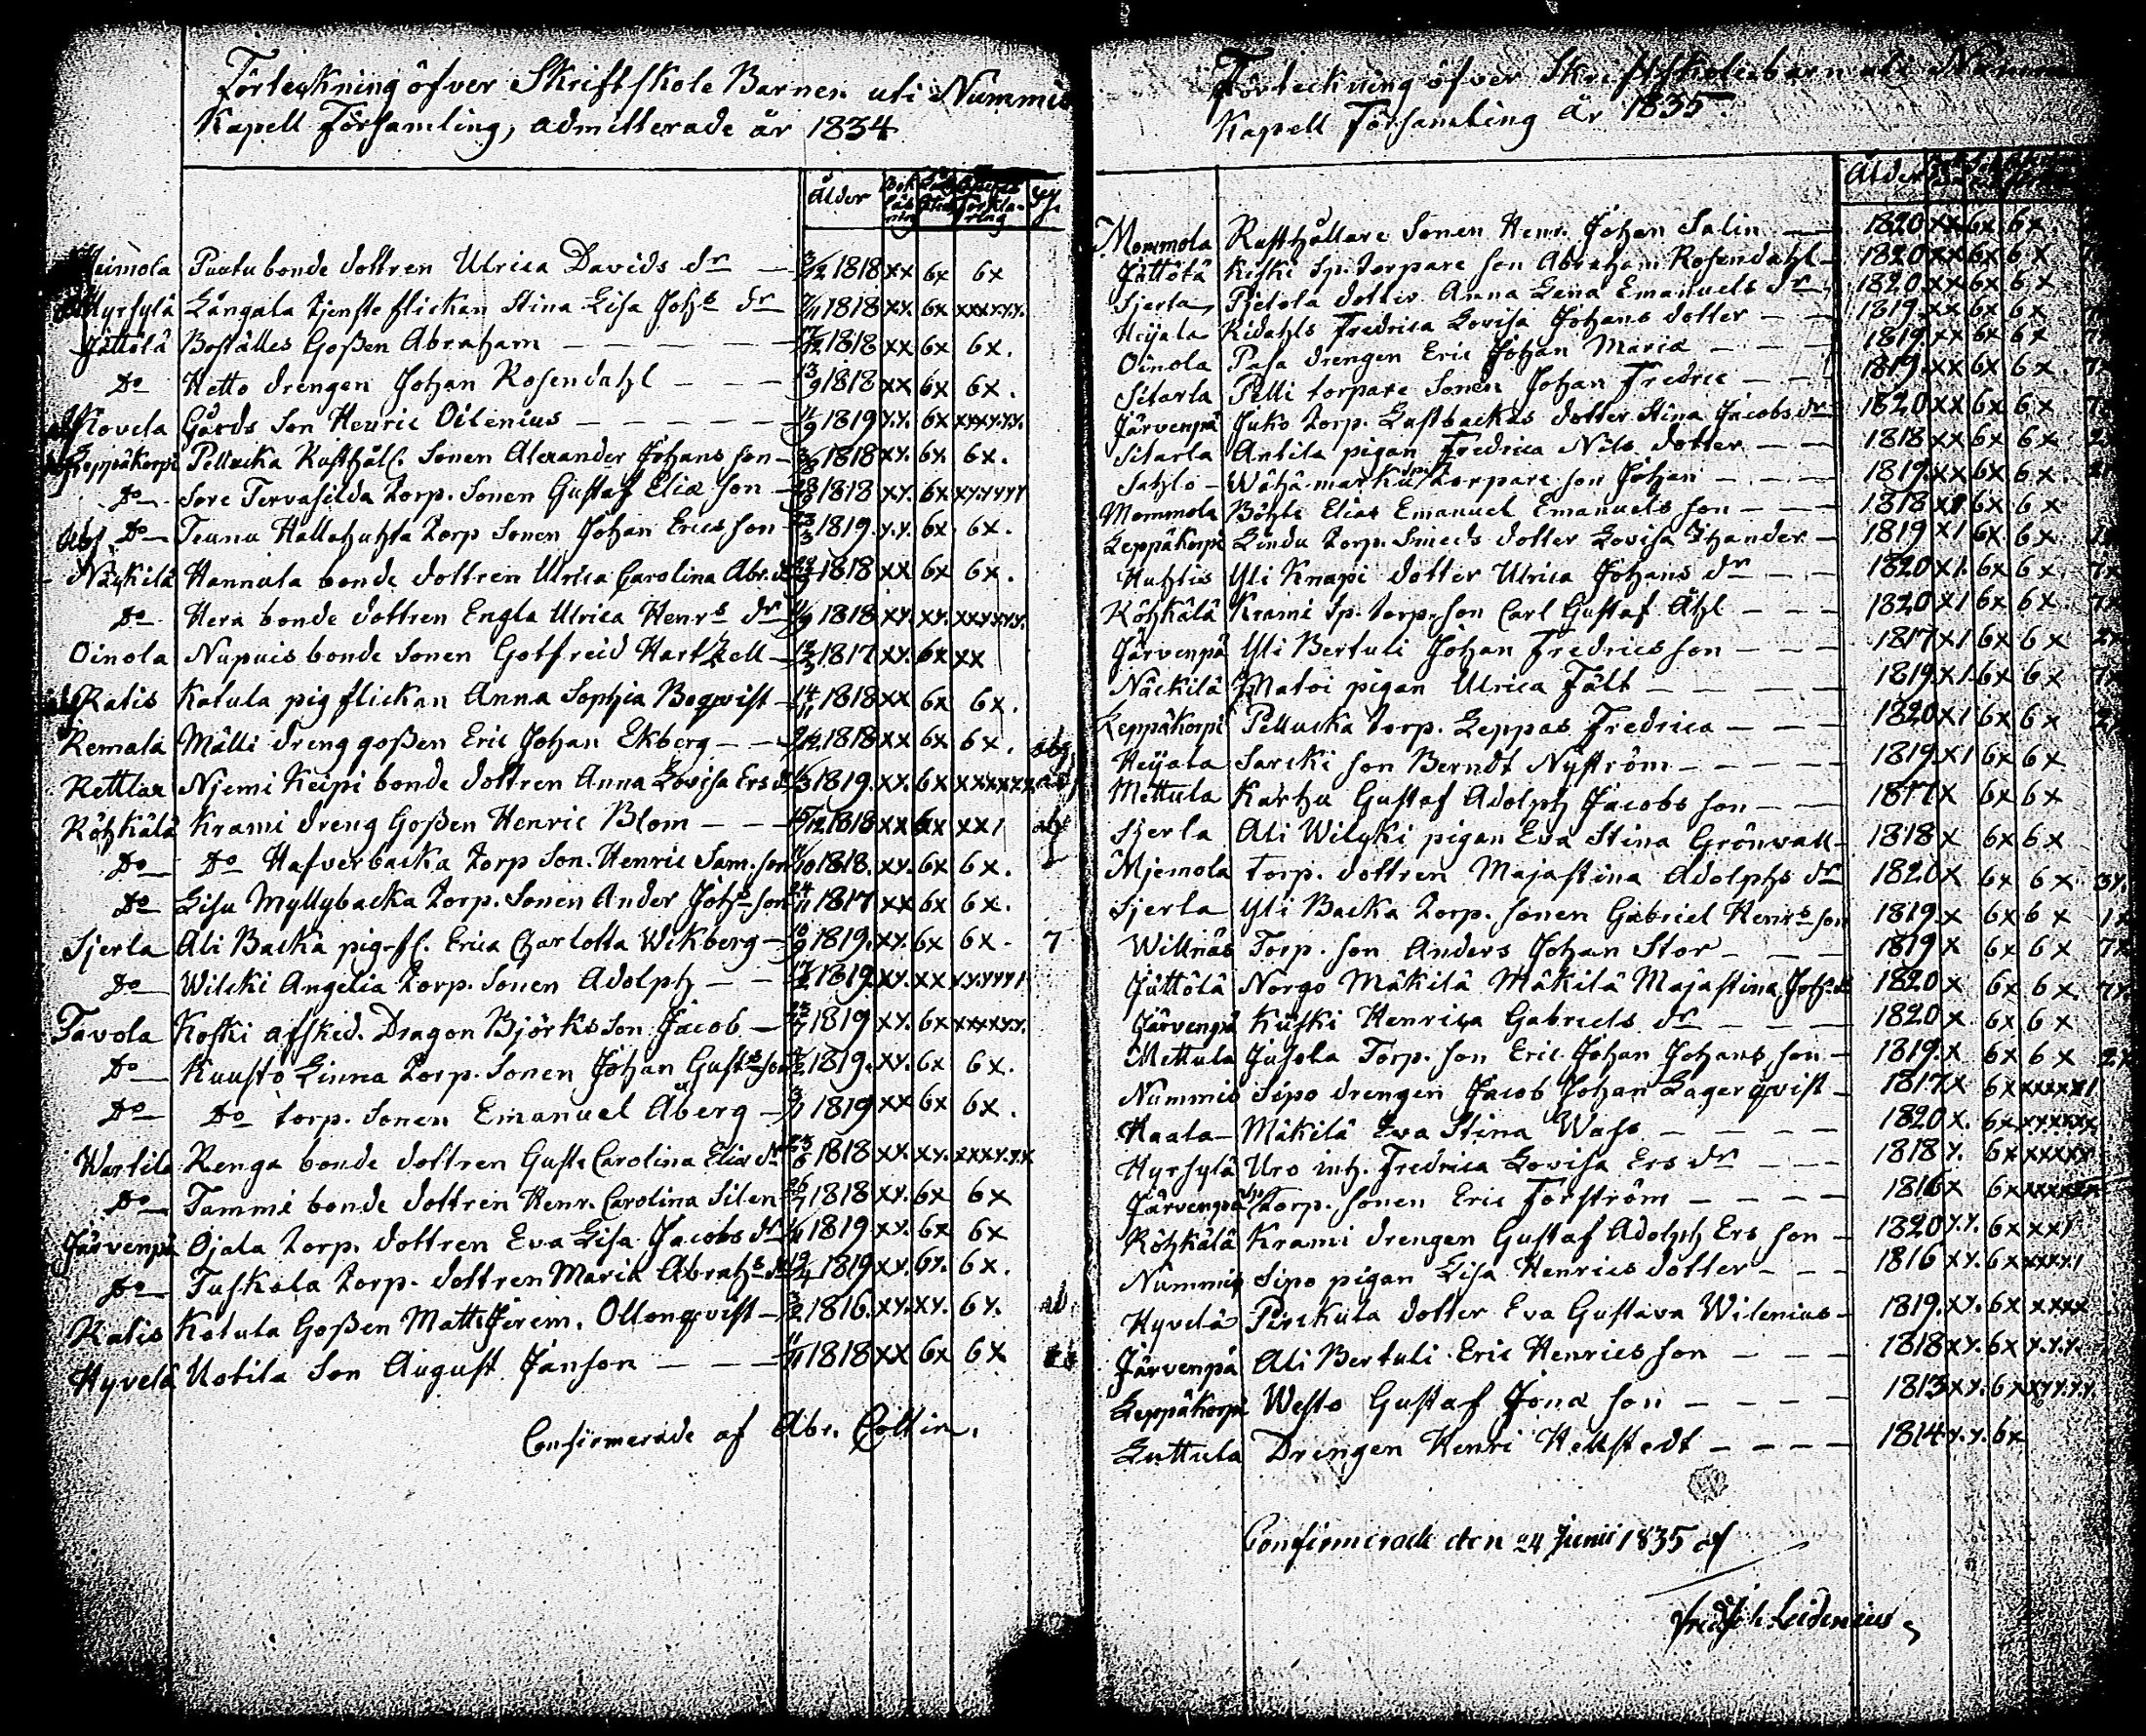 Förteckning öfver Skriftskole Barnen uti Nummis
Kapell Församling, admitterade år 1834
Ålder Bok läsning förklaring
Heimola Puntu bonde dottren Ulrica Davids dr — 3/2 1818 xx 6x 6x
Hyrsylä Långala tjenste flickan Stina Lisa Johs dr 1818 xx. 6x xxxxxx.
Jättölä Boställes Goßen Abraham — — — — 1818 xx 6x 6x.
Do Hetto drengen Johan Rosendahl — — — 13/9 1818 xx 6x 6x.
Kovela Gårds Son Henric Oilenius — — — — — 1819 x.x. 6x xxxx.x.
Leppäkorpi Pellucka Rusthåll. Sonen Alexander Johans son — 1818 xx. 6x. 6x.
Do Sore Tervasilda Torp. Sonen Gustaf Eliæ Son — 1818 xx. 6x xxxxxx
Do Teunu Hallahuhta Torp Sonen Johan Erics son 1819. x.x. 6x. 6x.
Näkkilä Hannula bonde dottren Ulrica Carolina Abr. d 1818 xx 6x 6x.
Do Hera bonde dottren Engla Ulrica Henrs dr 1818 xx. xx. xxxxxx.
Oinola Nupuis bonde Sonen Gotfreid Hartzell — 1817 xx. 6x xx
Ratis Katula pig flickan Anna Sophia Bogqvist — 14/11 1818 xx 6x 6x.
Remala Mälli dreng goßen Eric Johan Ekberg — — 1818 xx 6x 6x.
Rettlax Njemi Keipi bonde dottren Anna Lovisa Ers d 1819. xx. 6x xxxxxx
Röhkälä Krami dreng Goßen Henric Blom — — 1818 xx 6x xx1
Do Do Hafverbacka Torp Son. Henric Sam. son 1818. xx. 6x 6x.
Do Lisu Myllybacka Torp. Sonen Ander Johs son 24/11 1817 xx 6x 6x.
Sjerla Ali Backa pig-fl. Erica Charlotta Wikberg — 1819. xx. 6x 6x. 7
Do Wilcki Angelia Torp. Sonen Adolph — — 1819. xx. xx xxxxx1
Tavola Koski afsked. Dragon Björks Son Jacob — 1819 xx. 6x xxxxx.
Do Kuusto Linna Torp. Sonen Johan Gusts son 1819. xx. 6x 6x.
Do Do torp. Sonen Emanuel Åberg — 1819 xx 6x 6x.
Wartila Renga bonde dottren Gusta Carolina Eliæ dr 1818 xx xx. xxxxxx
Do Tammi bonde dottren Henr. Carolina Silen — 1818 xx. 6x 6x
Järvenpä Ojala Torp. dottren Eva Lisa Jacobs dr 1819 xx. 6x 6x
Do Tuskala Torp. dottren Maria Abrahs dr 1819 xx. 6x. 6x.
Ratis Katula Goßen Matts Jerem. Ollonqvist — 1816. xx. xx. 6x.
Hyvelä Uotila Son August Janson — — — 1818 xx 6x 6x
Confirmerade af Abr. Coltin.
Förteckning öfver Skriftskolebarn uti
Kapell Församling År 1835.
Ålder
Mommola Rusthållare Sonen Henr. Johan Salin — — 1820 xx 6x 6x.
Jättölä Kiski Sp. torpare son Abraham Rosendahl — 1820 xx 6x 6x
Sjerla Pjetola dotter Anna Lena Emanuels dr 1820 xx 6x 6x
Heijala Ridahls Fredrica Lovisa Johans dotter — — 1819. xx 6x 6x
Oinola Pasa drengen Eric Johan Maria — — — 1819. xx 6x 6x
Sitarla Pelli torpare Sonen Johan Fredric — — 1819. xx 6x 6x.
Järvenpä Juko Torp. Lustbackas dotter Stina Jacobs dr 1820 xx 6x 6x
Sitarla Antila pigan Fredrica Nils dotter — — 1818 xx 6x 6x
Sahlo — Wähä-markus torpare son Johan — — — 1819. xx 6x 6x.
Mommola Böhle Elias Emanuel Emanuels son — — — 1818 6x 6x
Leppäkorpi Lindu Torp. Smeds dotter Lovisa Thander — 1819 x1 6x 6x.
Huhtis Yli Knapi dotter Ulrica Johans dr — — 1820 x1. 6x 6x.
Röhkälä Krami Sp. Torp. son Carl Gustaf Åhl — — — 1820 x1 6x 6x.
Järvenpä Yli Bertuli Johan Fredrics son — — — 1817 x1 6x 6x
Näckilä Matoi pigan Ulrica Fält — — — — 1819. x1. 6x 6x
Leppäkorpi Pellucka Torp. Leppas Fredrica — — — 1820 x1 6x 6x
Heijala Sarcki son Berndt Nyström — — — — 1819 x1 6x 6x.
Mettula Karhu Gustaf Adolph Jacobs son — — — 1817 x 6x 6x
Sjerla Ali Wilcki pigan Eva Stina Grönvall — 1818 x 6x 6x
Mjemola torp. dottren Majastina Adolphs dr 1820 x 6x 6x 3x.
Sjerla Yli Backa Torp. sonen Gabriel Henrs son 1819. x 6x 6x
Willnäs Torp. son Anders Johan Stor — — — 1819 x 6x 6x 7x
Jättölä Norgo Mäkilä Mäkilä Majastina Johs d 1820 x 6x 6x. 7x
Järvenpä Kuski Henrica Gabriels dr — — — — 1820 x. 6x 6x
Mettula Jusola Torp. son Eric Johan Johans son — 1819. x 6x 6x 2x
Nummis Sipo drengen Jacob Johan Lagerqvist — 1817 x 6x xxxxx1
Haala — Mäkilä Eva Stina Wass — — — — 1820 x. 6x xxxxxx
Hyrsylä Uro inh. Fredrica Lovisa Ers dr — — — 1818 x. 6x xxxxx
Järvenpä Torp. sonen Eric Forström — — — — 1816 x 6x
Röhkälä Krami drengen Gustaf Adolph Ers son — 1820 x.x. 6x xxx
Nummis Sipo pigan Lisa Henrics dotter — — — 1816 xx. 6x xxxx1
Hyvelä Pirckula dotter Eva Gustava Wilenius — 1819. xx. 6x xxxx
Järvenpä Ali Bertuli Eric Henrics son — — — 1818 xx. 6x x.x.x.
Leppäkorpi Westo Gustaf Jonæ son — — — — 1813 x.x. 6x xxx.x.x.
Luttula Drengen Henri Hellstedt — — — — 1814 x.x. 6x
Confirmerade den 24 Junii 1835 af
Leidenius